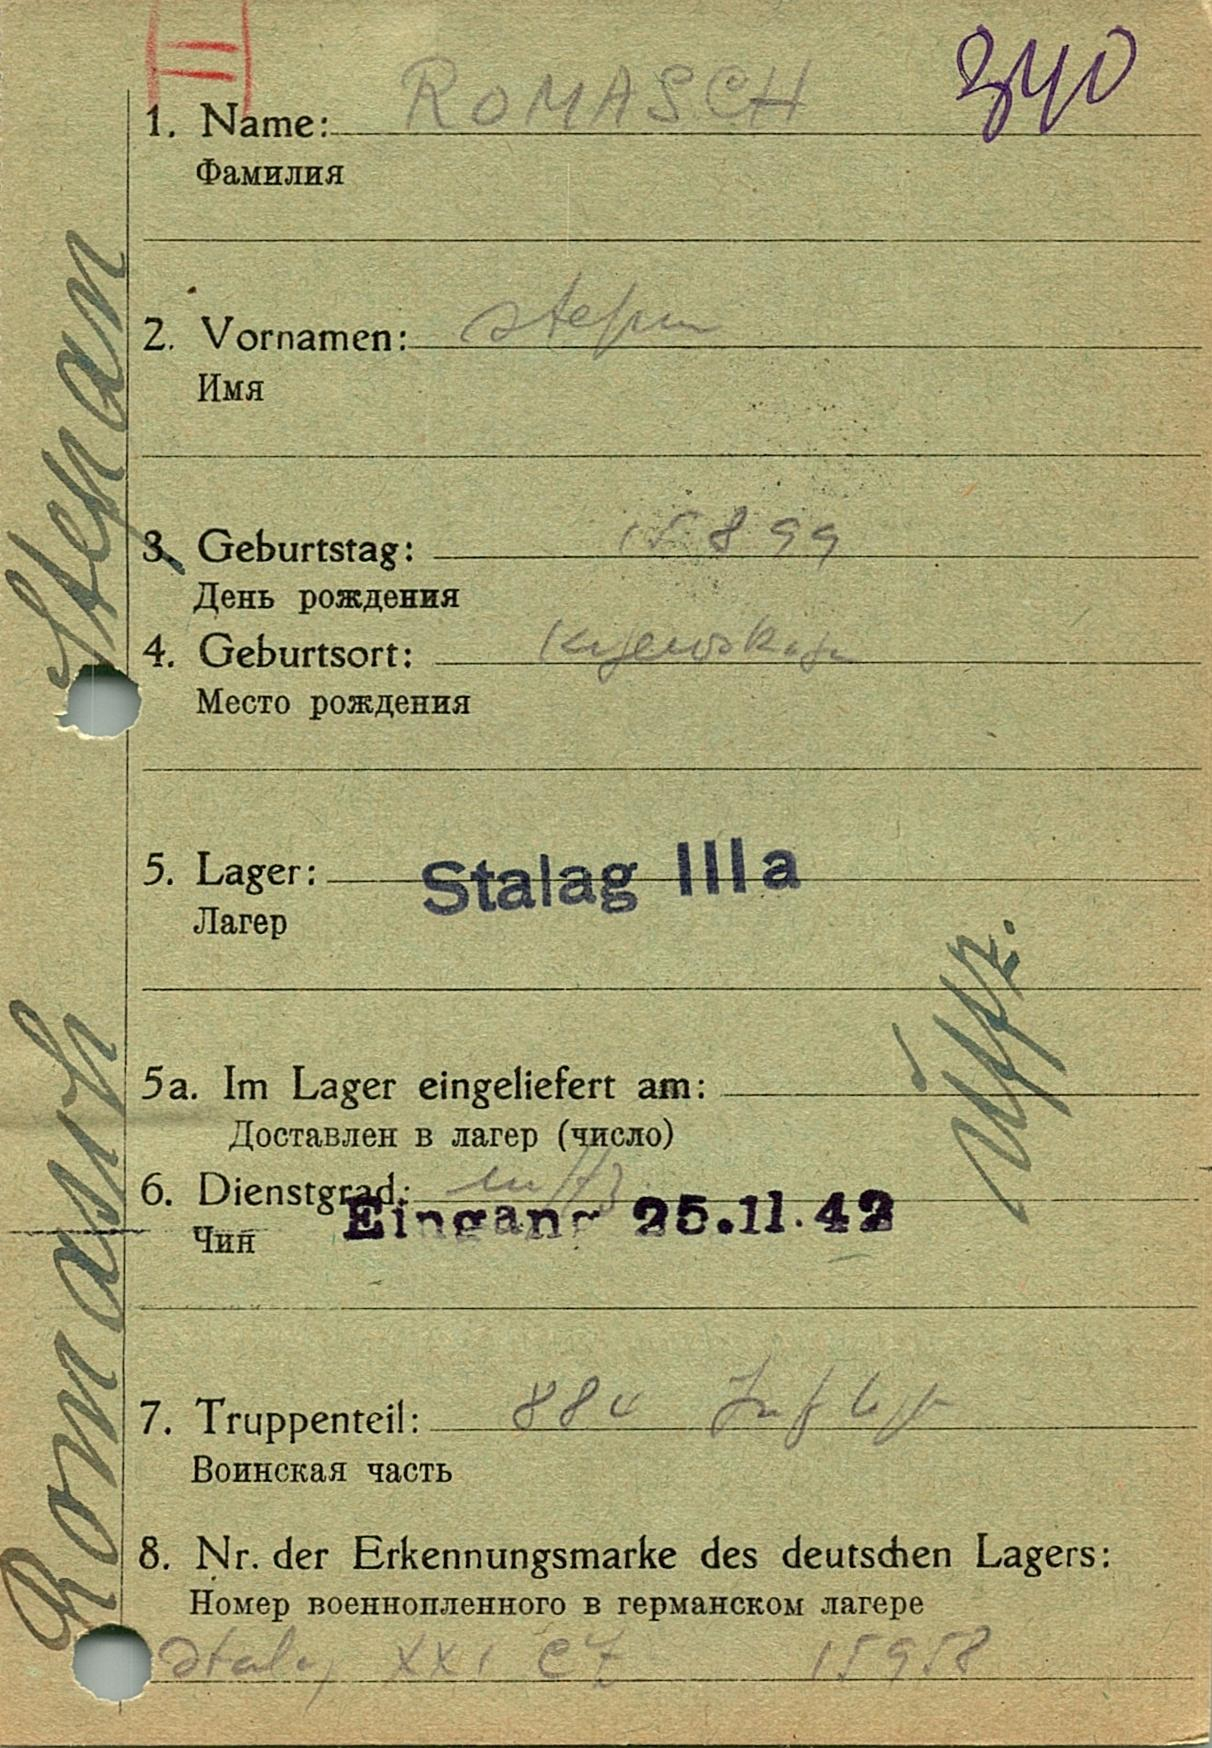 340
1. Name: ROMASCH
Фамилия
2. Vornamen: Stepan
Имя
3. Geburtstag: 15 8 99
День рождения
4. Geburtsort:
Место рождения
5. Lager: Stalag IIIa
Лагер
5a. Im Lager eingeliefert am:
Доставлен в лагер (число)
6. Dienstgrad: Uffz
Чин
Eingang 25.11.42
7. Truppenteil: 884 Inf
Воинская часть
8. Nr. der Erkennungsmarke des deutschen Lagers:
Номер военнопленного в германском лагере
Stalag XXI C/Z 15958
Romasch Stepan
Uffz.